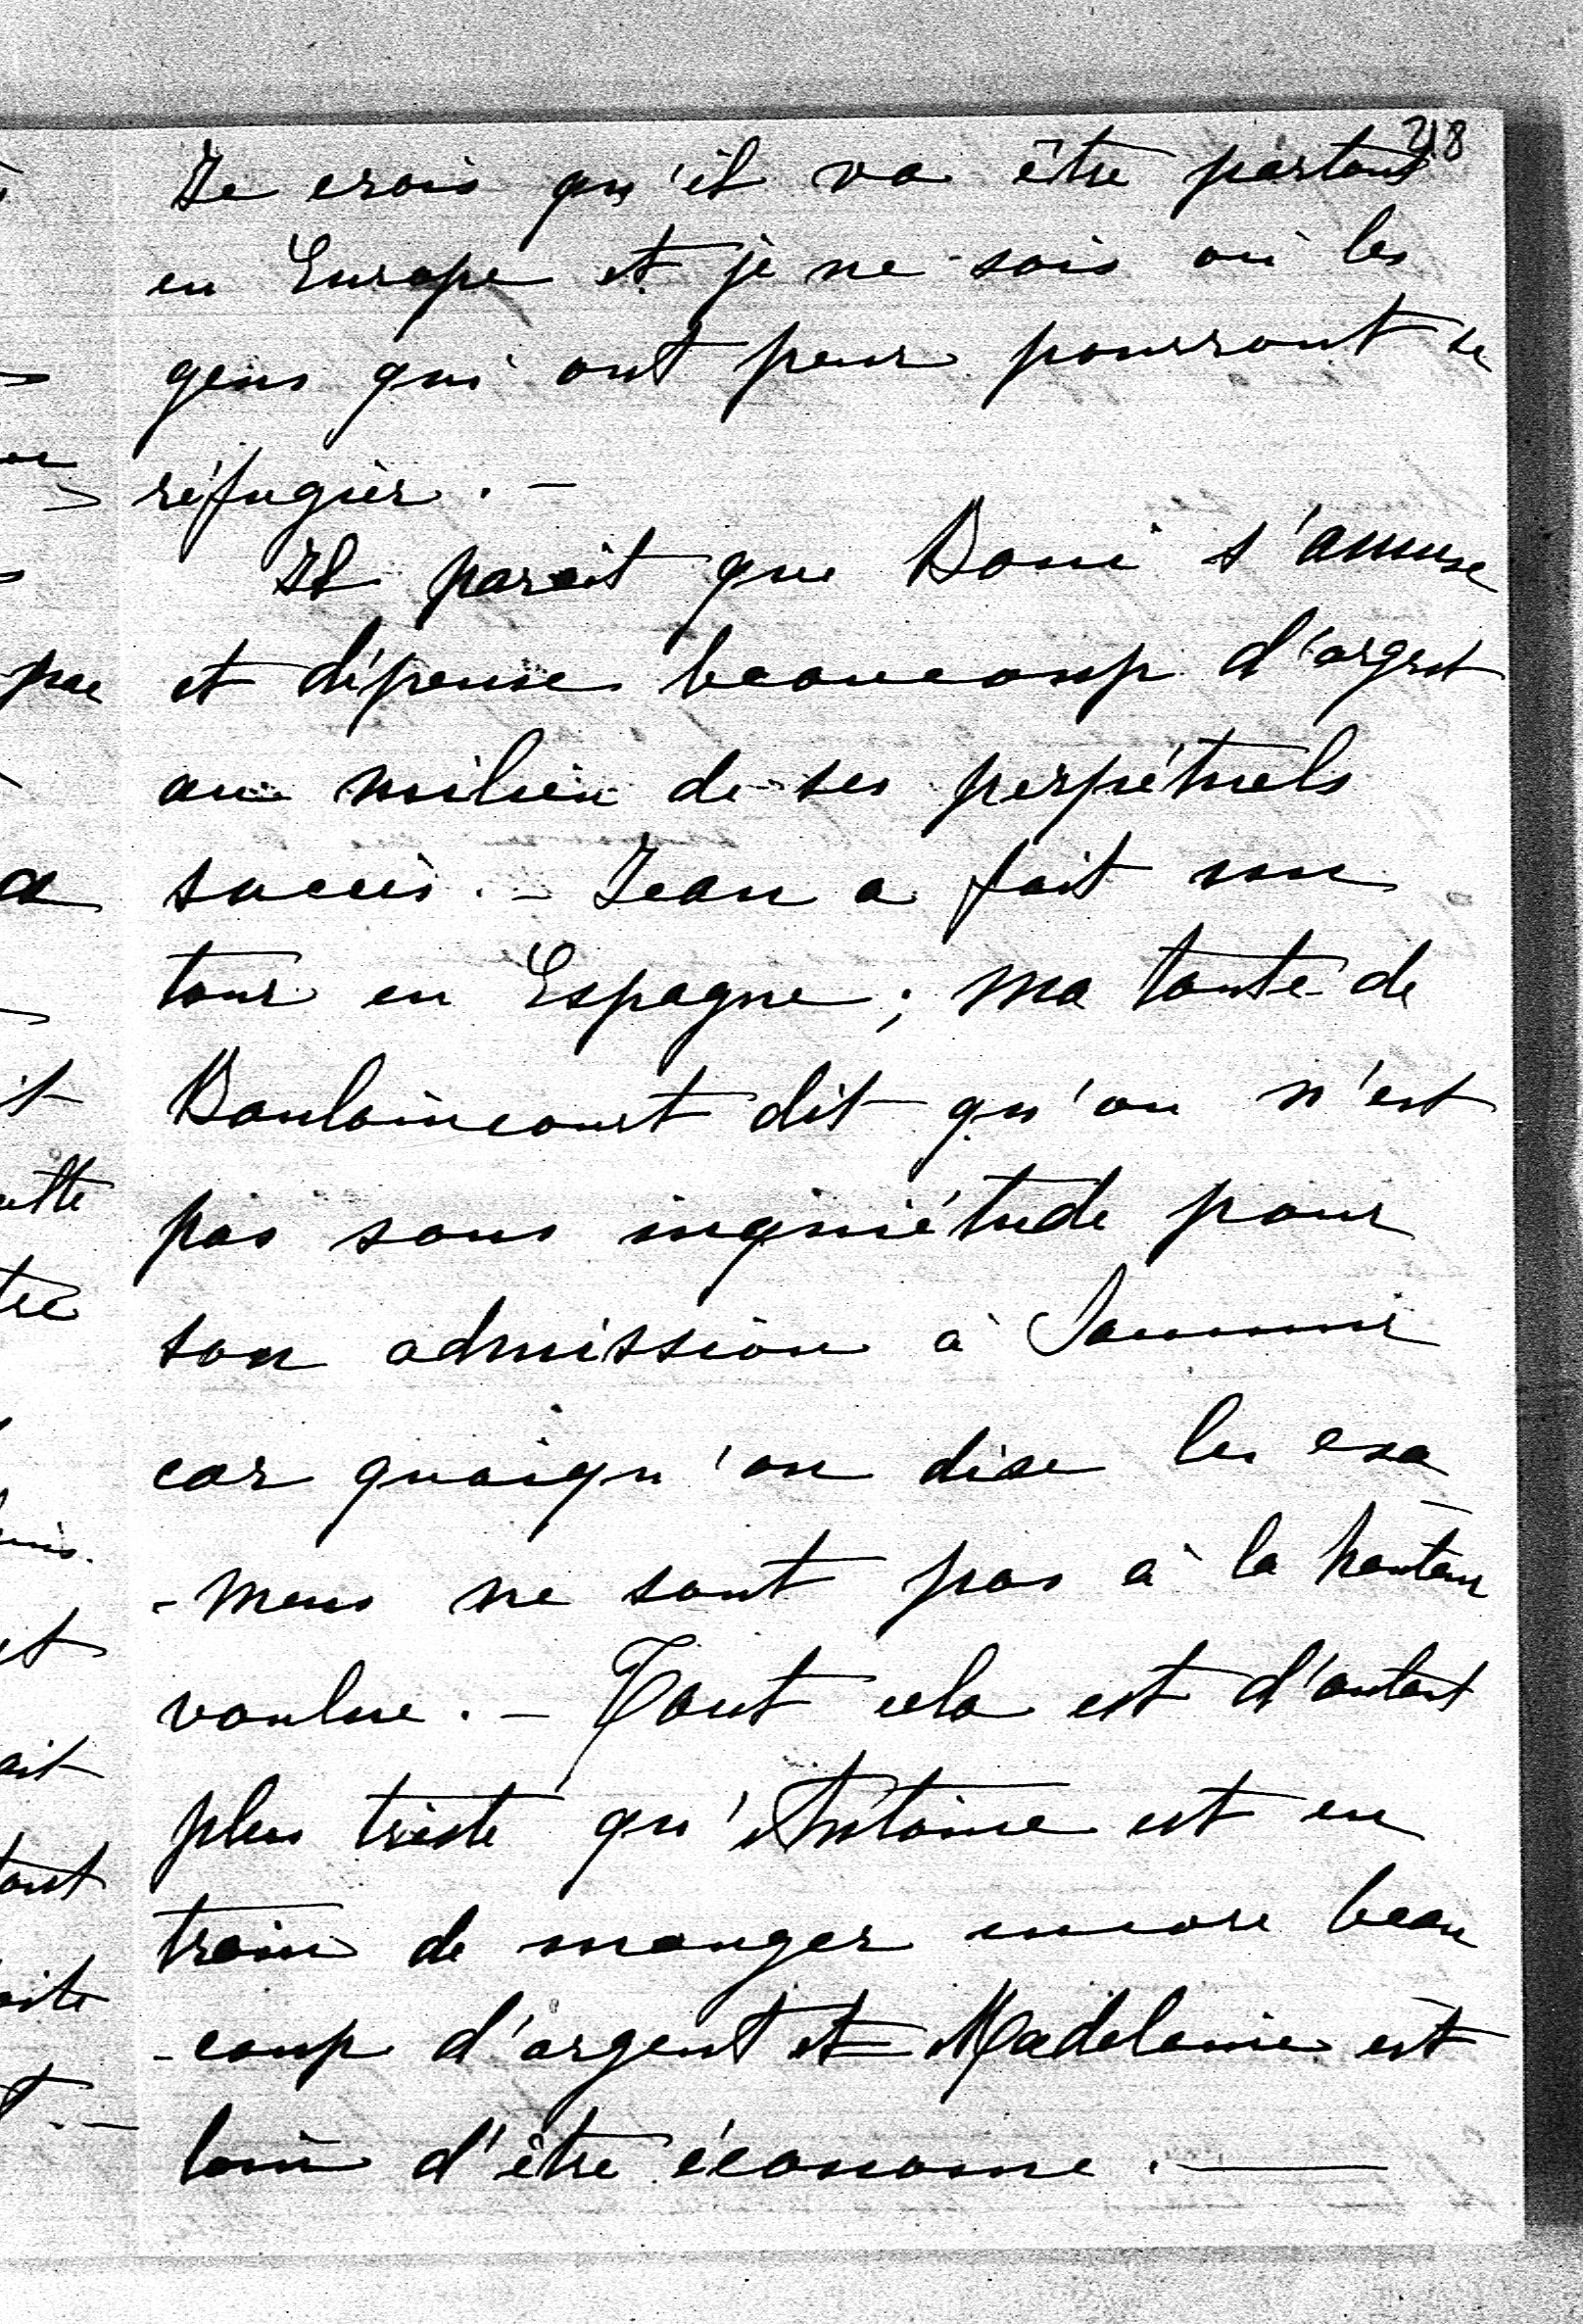 218
Je crois qu'il va être partout
en Europe et je ne sais où les
gens qui ont peur pourront se
réfugier. —
Il parait que Boni s'amuse
et dépense beaucoup d'argent
au milieu de ses perpétuels
succès. — Jean a fait un
tour en Espagne ; ma tante de
Boulaincourt dit qu'on n'est
pas sans inquiétude pour
son admission à Saumur
car quoiqu'on dise les exa
-mens ne sont pas à la hauteur
voulue. — Tout cela est d'autant
plus triste qu'Antoine est en
train de manger encore beau
-coup d'argent et Madeleine est
loin d'être économe. —